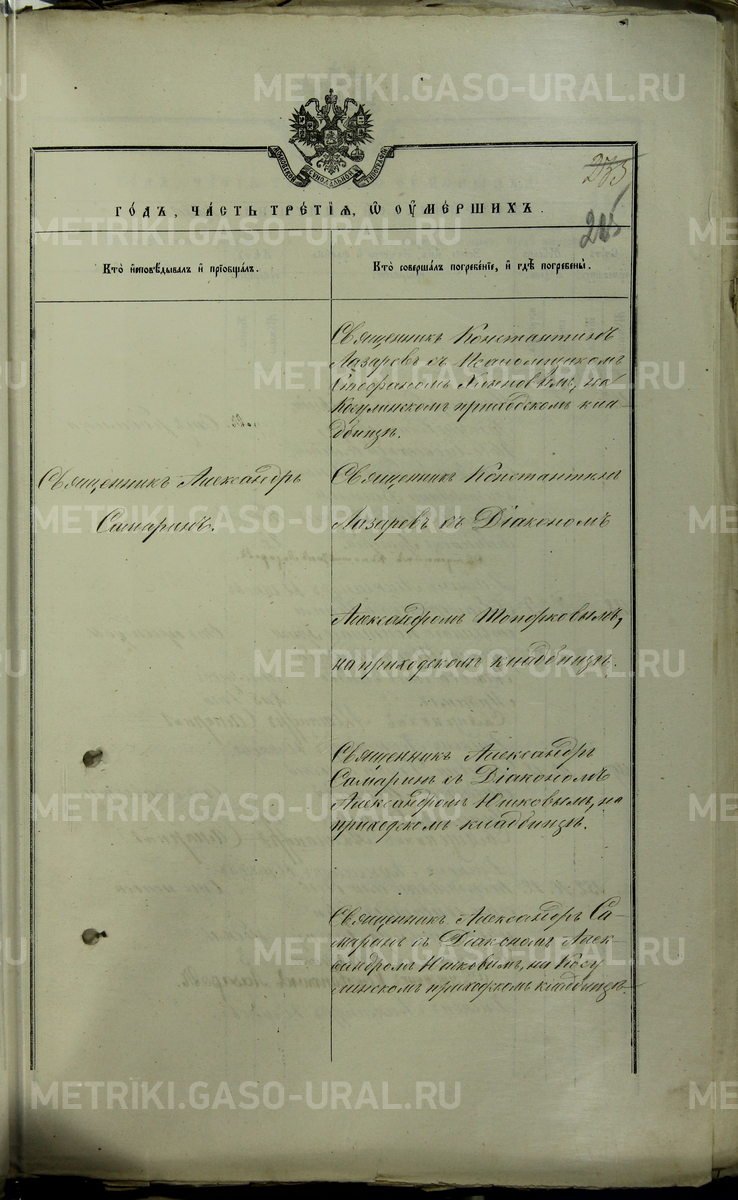 METRIKI.GASO-URAL.RU
МОСКОВСКОЙ СѴНОДАЛЬНОЙ ТИПОГРАФІИ
235
205
ГО́ДЪ, ЧА́СТЬ ТРЕ́ТІѦ, Ѡ ОУ҆МЕ́РШИХЪ.
Кто̀ и҆сповѣ́дывалъ и҆ прїѡбща́лъ.
Кто̀ соверша́лъ погребе́нїе, и҆ гдѣ̀ погребены̀.
Священникъ Константинъ
Лазаревъ съ Псаломщикомъ
Стефаномъ на
Косулинскомъ приходскомъ кла-
дбищѣ.
Священникъ Александръ
Самаринъ.
Священникъ Константинъ
Лазаревъ съ Діакономъ
Александромъ Топорковымъ,
на приходскомъ кладбищѣ.
Священникъ Александръ
Самаринъ съ Діакономъ
Александромъ Юшковымъ, на
приходскомъ кладбищѣ.
Священникъ Александръ Са-
маринъ съ Діакономъ Алек-
сандромъ Юшковымъ, на Косу
линскомъ приходскомъ кладбищѣ.